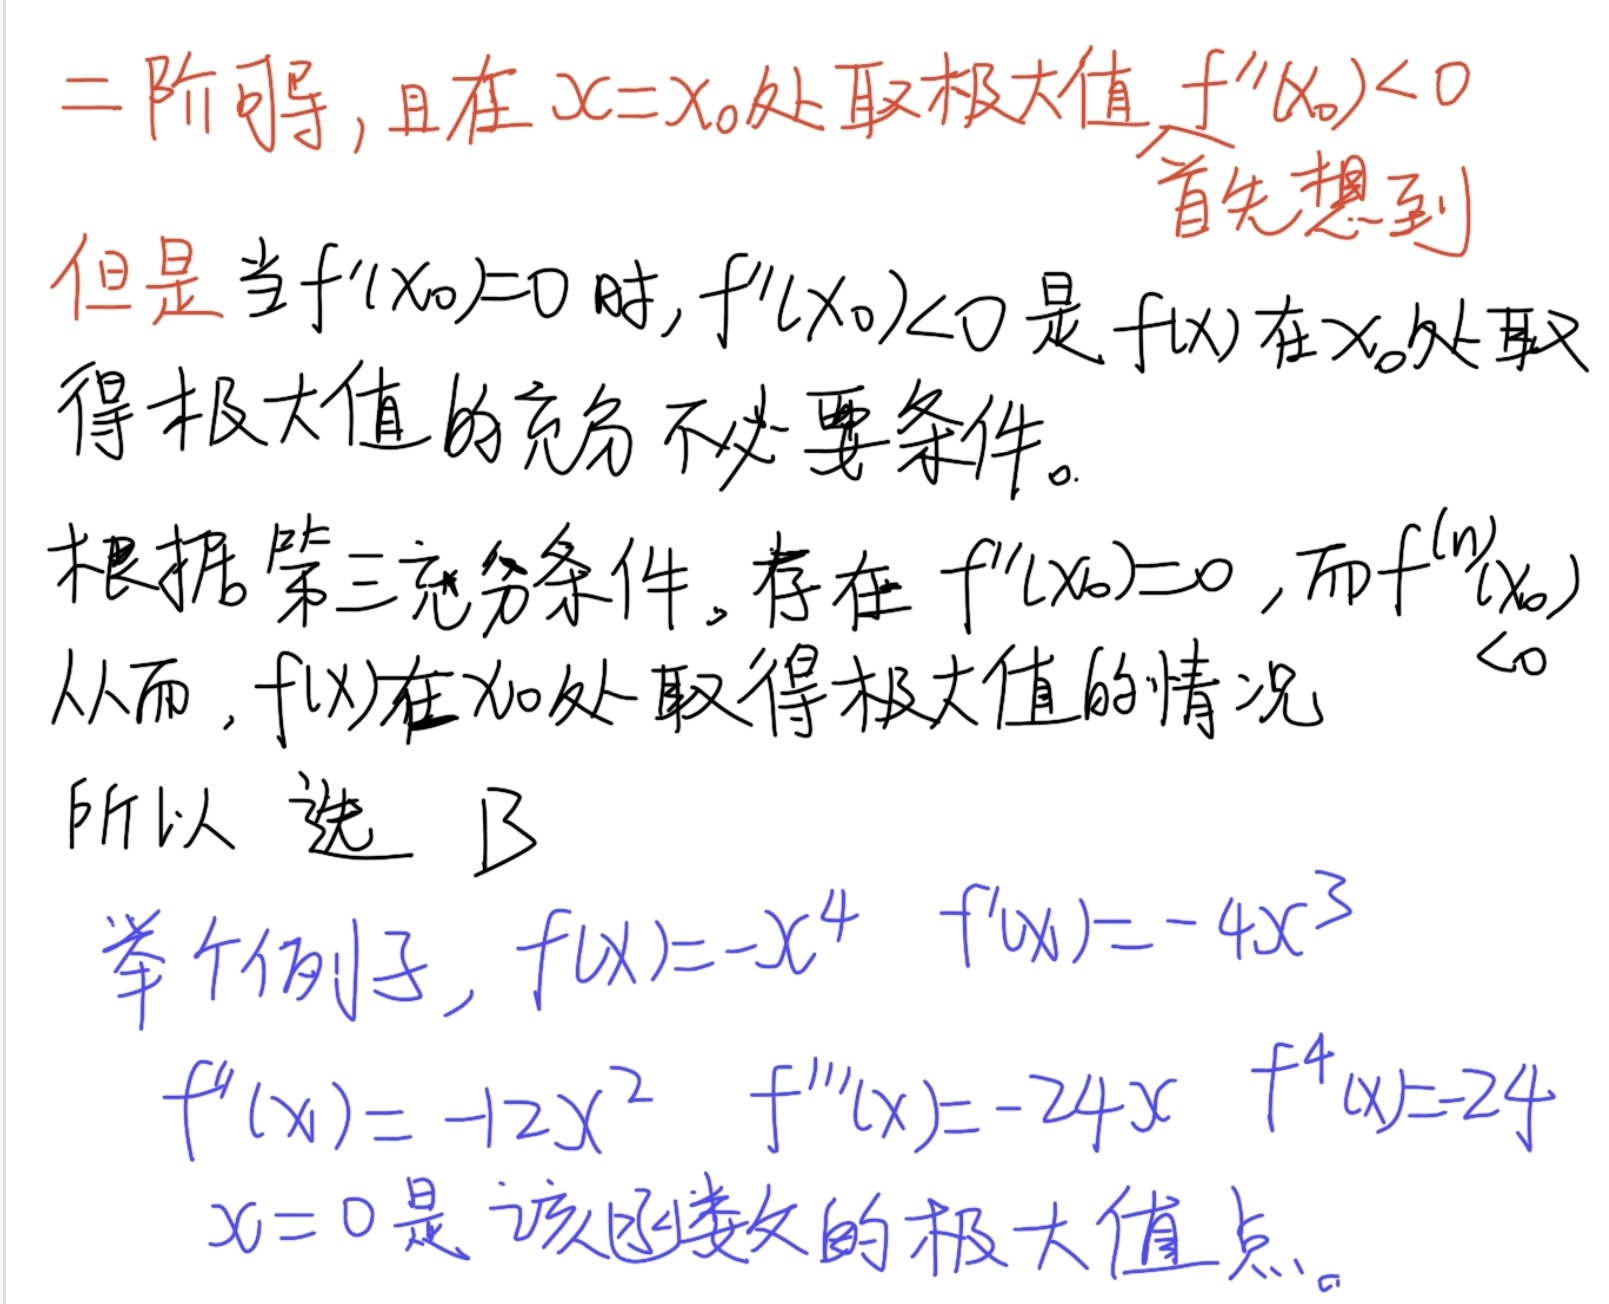 二阶可导,且在x=x₀处取极大值 f''(x₀)<0
首先想到
但是当f'(x₀)=0时,f''(x₀)<0是f(x)在x₀处取
得极大值的充分不必要条件。
根据第三充分条件。存在f''(x₀)=0,而f⁽ⁿ⁾(x₀)
<0
从而,f(x)在x₀处取得极大值的情况
所以 选 B
举个例子,f(x)=-x⁴ f'(x)=-4x³
f''(x)=-12x² f'''(x)=-24x f⁴(x)=-24
x=0是该函数的极大值点。